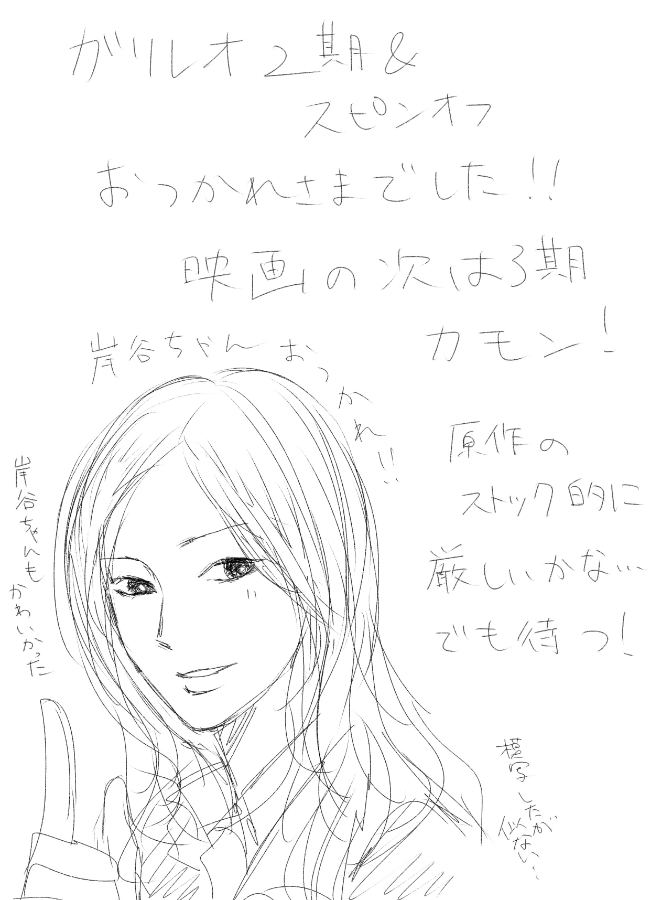 ガリレオ2期&
スピンオフ
おつかれさまでした!!
映画の次は3期
カモン!
岸谷ちゃんおつかれ!!
原作の
ストック的に
厳しいかな…
でも待つ!
岸谷ちゃんも
かわいかった
模写したが
似ない…